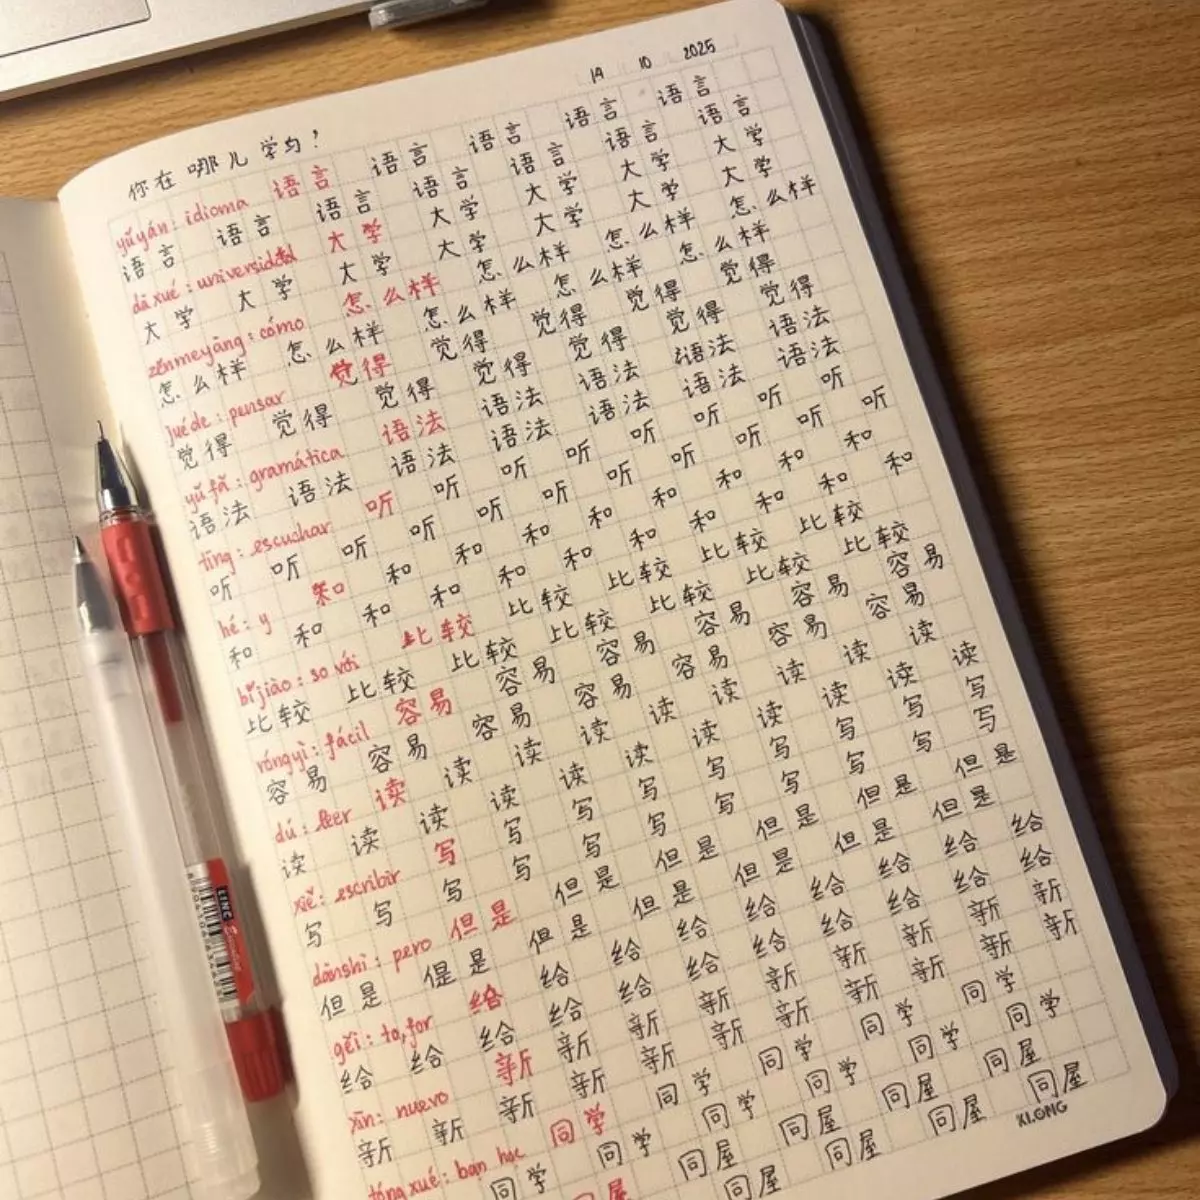 14 10 2025
你在哪儿学习?
yǔyán: idioma 语言 语言 语言 语言 语言
语言 语言 语言 语言 语言 语言 语言
dàxué: universidad 大学 大学 大学 大学 大学
大学 大学 大学 大学 大学 大学 大学
zěnmeyàng: cómo 怎么样 怎么样 怎么样 怎么样
怎么样 怎么样 怎么样 怎么样 怎么样
juéde: pensar 觉得 觉得 觉得 觉得 觉得
觉得 觉得 觉得 觉得 觉得 觉得 觉得
yǔfǎ: gramática 语法 语法 语法 语法 语法
语法 语法 语法 语法 语法 语法 语法
tīng: escuchar 听 听 听 听 听 听 听 听
听 听 听 听 听 听 听 听 听 听 听
hé: y 和 和 和 和 和 和 和 和 和
和 和 和 和 和 和 和 和 和 和 和
bǐjiào: so với 比较 比较 比较 比较 比较
比较 比较 比较 比较 比较 比较 比较
róngyì: fácil 容易 容易 容易 容易 容易 容易
容易 容易 容易 容易 容易 容易 容易
dú: leer 读 读 读 读 读 读 读 读 读
读 读 读 读 读 读 读 读 读 读 读
xiě: escribir 写 写 写 写 写 写 写 写 写
写 写 写 写 写 写 写 写 写 写 写
dànshì: pero 但是 但是 但是 但是 但是 但是
但是 但是 但是 但是 但是 但是 但是
gěi: to, for 给 给 给 给 给 给 给 给 给
给 给 给 给 给 给 给 给 给 给 给
xīn: nuevo 新 新 新 新 新 新 新 新 新
新 新 新 新 新 新 新 新 新 新 新
tóngxué: bạn học 同学 同学 同学 同学 同学
同学 同学 同学 同学 同学 同学
同屋 同屋 同屋 同屋 同屋
同屋 同屋 同屋 同屋
KLONG
LINC